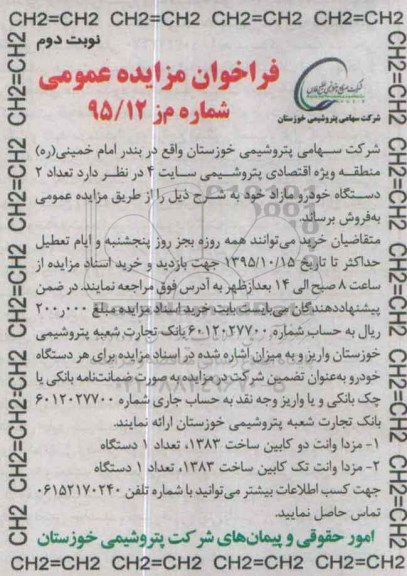 CH2=CH2 CH2=CH2 CH2=CH2 CH2=CH2 CH2=CH2
نوبت دوم
فراخوان مزایده عمومی
شماره م‌ز ۹۵/۱۲
شرکت سهامی پتروشیمی خوزستان
شرکت سـهامی پتروشیمی خوزستان واقع در بندر امام خمینی(ره)
منطقـه ویژه اقتصادی پتروشـیمی سـایت ۴ در نظر دارد تعداد ۲
دسـتگاه خودرو مازاد خود به شـرح ذیل را از طریق مزایده عمومی
به‌فروش برساند.
متقاضیان خرید می‌توانند همه روزه بجز روز پنجشنبه و ایام تعطیل
حداکثر تا تاریخ ۱۳۹۵/۱۰/۱۵ جهت بازدید و خرید اسناد مزایده از
ساعت ۸ صبح الی ۱۴ بعدازظهر به آدرس فوق مراجعه نمایند. در ضمن
پیشنهاددهندگان می‌بایست بابت خرید اسناد مزایده مبلغ ۲۰۰٫۰۰۰
ریال به حساب شماره ۶۰۱۲۰۲۷۷۰۰ بانک تجارت شعبه پتروشیمی
خوزستان واریز و به میزان اشاره شده در اسناد مزایده برای هر دستگاه
خودرو به‌عنوان تضمین شرکت در مزایده به صورت ضمانت‌نامه بانکی یا
چک بانکی و یا واریز وجه نقد به حساب جاری شماره ۶۰۱۲۰۲۷۷۰۰
بانک تجارت شعبه پتروشیمی خوزستان ارائه نمایند.
۱- مزدا وانت دو کابین ساخت ۱۳۸۳، تعداد ۱ دستگاه
۲- مزدا وانت تک کابین ساخت ۱۳۸۳، تعداد ۱ دستگاه
جهت کسب اطلاعات بیشتر می‌توانید با شماره تلفن ۰۶۱۵۲۱۷۰۲۴۰
تماس حاصل نمایید.
امور حقوقی و پیمان‌های شرکت پتروشیمی خوزستان
CH2=CH2 CH2=CH2 CH2=CH2 CH2=CH2 CH2=CH2